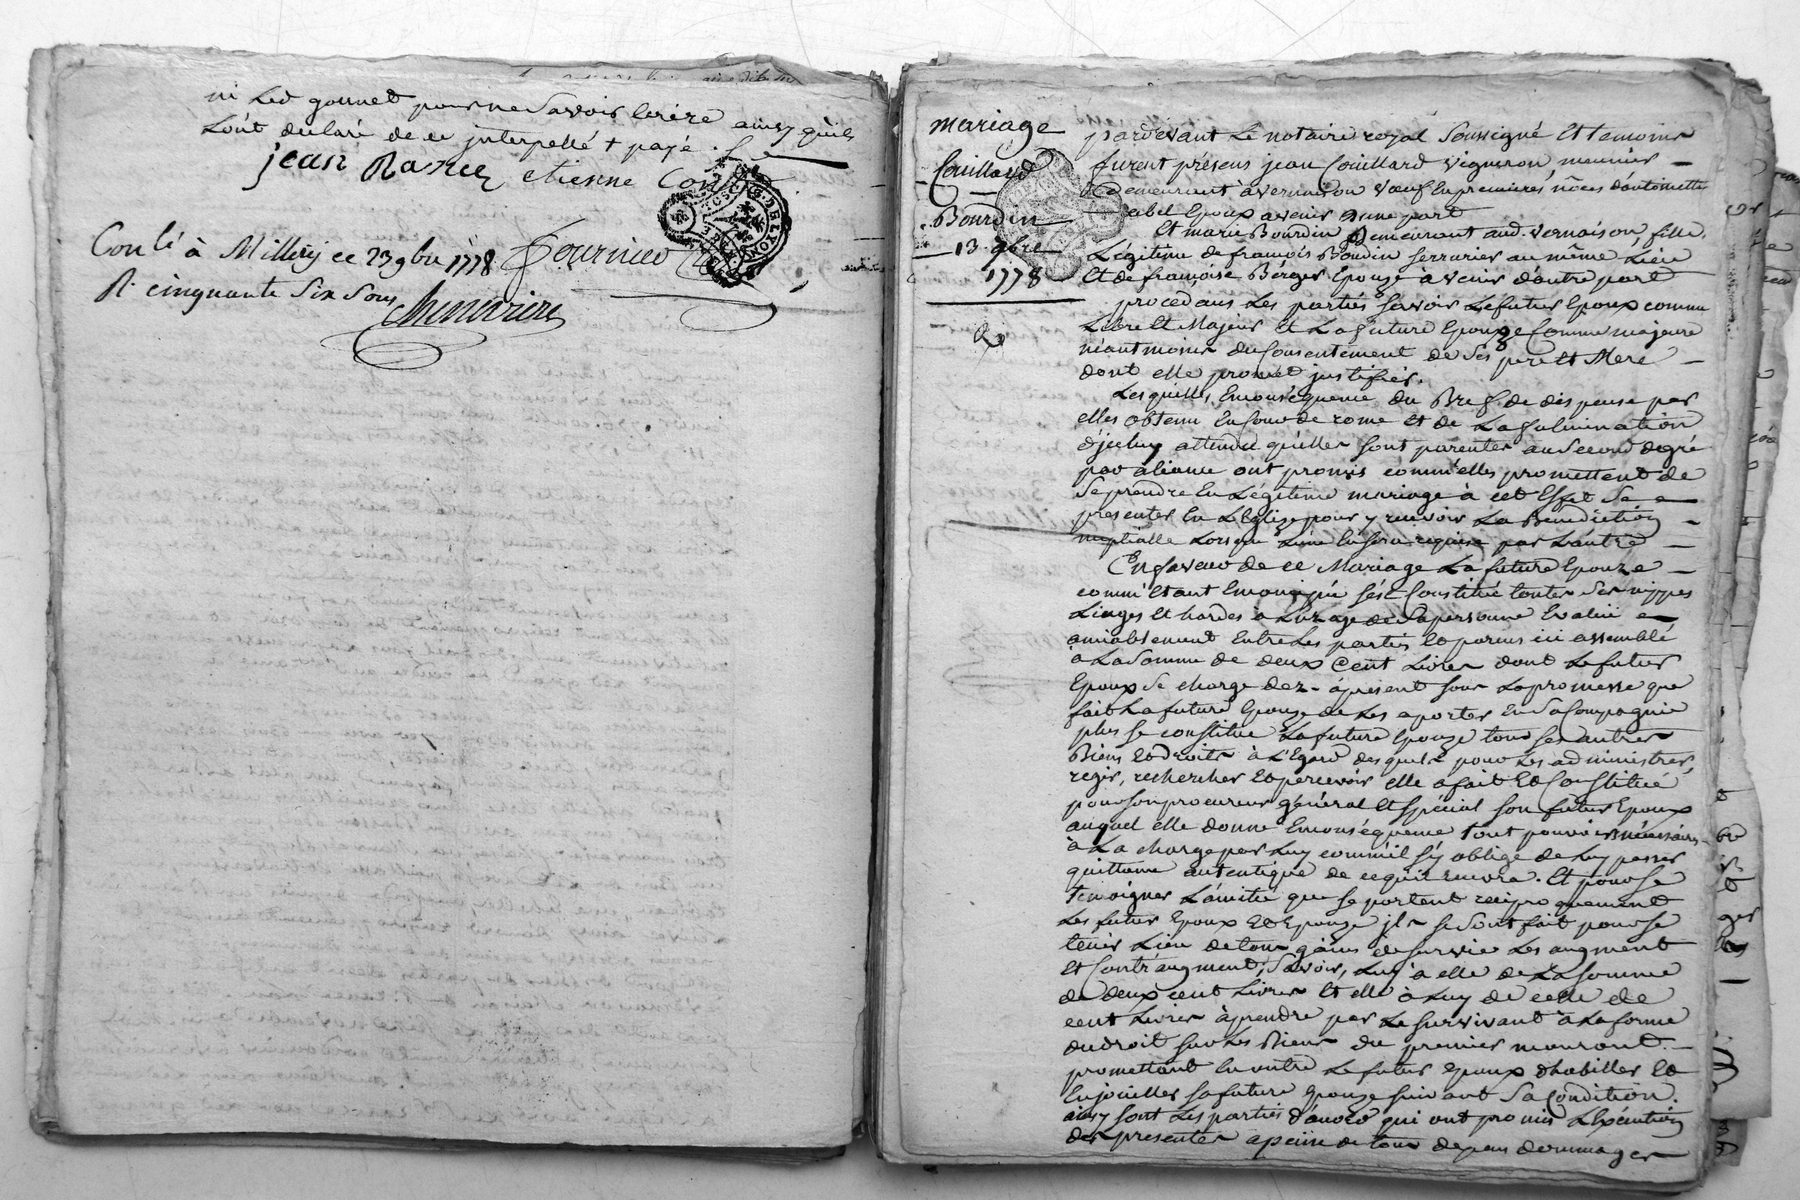 ni Led gonnet pour ne Savoir Ecrire ainsy qu'ils
L'ont declaré de ce jnterpellé + payé
jean Rance etienne
Conlé à Millery ce 23 9bre 1778 fournier
R. cinquante Six Sous
mariage
Couillard
Bourdin
13 9bre
1778
pardevant Le notaire royal Soussigné Et temoins
furent présens jean Couillard vigneron, meunier
demeurant à vernaison veuf En premieres nôces d'antoinette
abel Epoux avenir d'une part
Et marie Bourdin Demeurant aud. vernaison, fille
Légitime de françois Bourdin serrurier au même Lieu
Et de françoise Berger Epouze à venir d'autre part
procedans Les parties Savoir Le futur Epoux comme
Libre Et Majeur Et La future Epouze Comme majeure
néantmoins du Consentement de Ses pere Et Mere
dont elle promet justifier.
Lesquelles En conséquence du Bref de dispense par
elles obtenu En Cour de rome Et de La fulmination
d'jceluy attendu qu'elles sont parentes au Second degré
par aliance ont promis comm'elles promettent de
Se prendre En Légitime mariage à cet Effet Se
presenter En L'Eglize pour y recevoir La Benediction
nuptialle Lorsque L'une En Sera requise par L'autre
En faveur de ce Mariage La future Epouze
comm'Etant Emancipée s'est Constitué toutes Ses nippes
Linges Et hardes à L'uzage de Sa personne Evalué
amiablement Entre Les parties Et parens ici assemblé
à La Somme de deux Cent Livres dont Le futur
Epoux Se charge dez-àprésent Sous La promesse que
fait La future Epouze de Les aporter En Sa Compagnie
plus se constitue La future Epouze tous Ses autres
Biens Et droits à L'Egard desquels pour Les administrer,
regir, rechercher Et percevoir elle a fait Et Constitué
pour Son procureur général Et Spécial Son futur Epoux
auquel elle donne En conséquence tout pouvoir nécessaire
à La charge par Luy comm'il S'y oblige de Luy passer
quittance autentique de ce qu'il recevra. Et pour Se
Temoigner L'amitié que Se portent reciproquement
Les futur Epoux Et Epouze jls se Sont fait pour Se
tenir Lieu de tous gains de Survie Les augment
Et Contr'augment; Savoir, Luy à elle de La Somme
de deux cent Livres Et elle à Luy de celle de
cent Livres à prendre par Le Survivant à La forme
du droit Sur Les Biens du premier mourant.
promettant En outre Le futur Epoux d'habiller Et
Enjoueller Sa future Epouze Suivant Sa Condition.
ainsy Sont Les parties d'accord qui ont promis L'Exécution
des presentes à peine de tous depens dommages